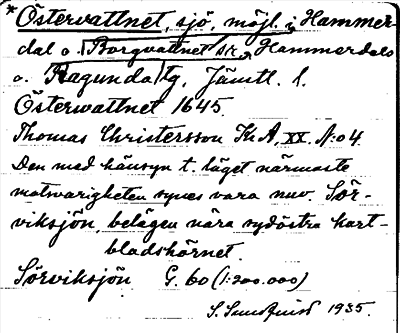 *Östervattnet, sjö, möjl. i Hammer-
dal o. Borgvattnet sr, Hammerdals
o. Ragunda tg, Jämtl. l.
Östervattnet 1645.
Thomas Christersson KrA, XX. N:o 4.
Den med hänsyn t. läget närmaste
motsvarigheten synes vara nuv. Sör-
viksjön, belägen nära sydöstra kart-
bladshörnet.
Sörviksjön G. 60 (1:200.000)
S. Sundquist 1935.